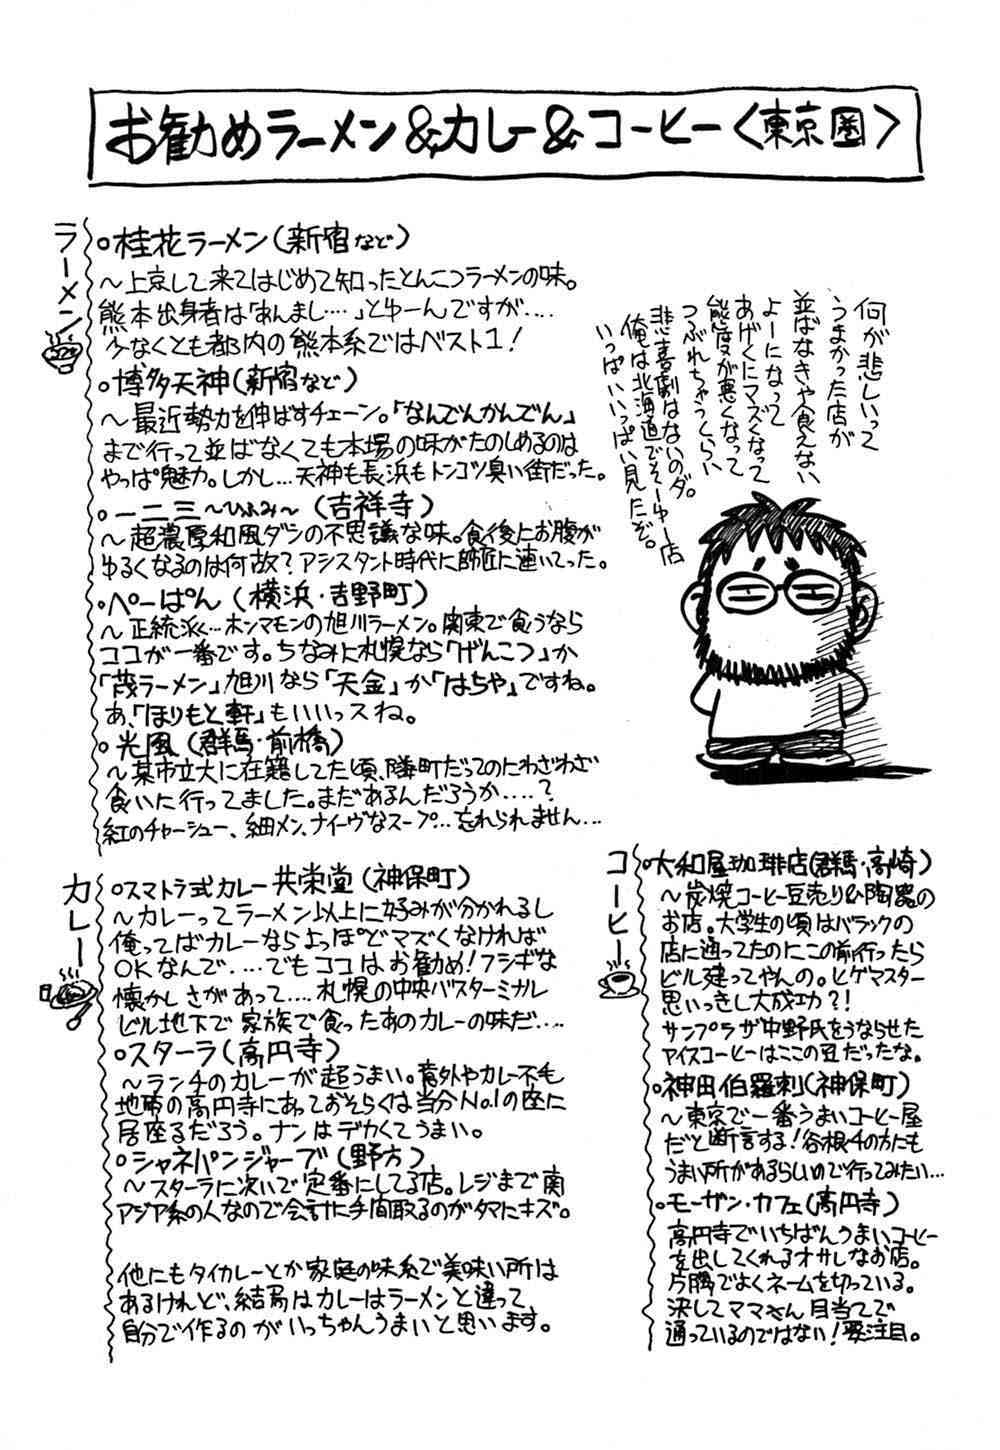 お勧めラーメン&カレー&コーヒー<東京圏>
ラーメン
○桂花ラーメン(新宿など)
〜上京して来てはじめて知ったとんこつラーメンの味。
熊本出身者は「あんまし‥‥」とゆーんですが‥‥
少なくとも都内の熊本系ではベスト1!
○博多天神(新宿など)
〜最近勢力を伸ばすチェーン。「なんでんかんでん」
まで行って並ばなくても本場の味がたのしめるのは
やっぱ魅力。しかし…天神も長浜もトンコツ臭い街だった。
○一二三〜ひふみ〜(吉祥寺)
〜超濃厚和風ダシの不思議な味。食後にお腹が
ゆるくなるのは何故?アシスタント時代に師匠に連いてった。
○ぺーぱん(横浜・吉野町)
〜正統派く…ホンマモンの旭川ラーメン。関東で食うなら
ココが一番です。ちなみに札幌なら「げんこつ」か
「茂ラーメン」旭川なら「天金」か「はちや」ですね。
あ、「ほりもと軒」もいいっスね。
○光風(群馬・前橋)
〜某市立大に在籍してた頃、隣町だってのにわざわざ
食いに行ってました。まだあるんだろうか‥‥?
紅のチャーシュー、細メン、ナイーヴなスープ…忘れられません…
何が悲しいって
うまかった店が
並ばなきゃ食えない
よーになって
あげくにマズくなって
態度が悪くなって
つぶれちゃうくらい
悲喜劇はないのダ。
俺は北海道でそーゆー店
いっぱいいっぱい見たぞ。
カレー
○スマトラ式カレー共栄堂(神保町)
〜カレーってラーメン以上に好みが分かれるし
俺ってばカレーならよっぽどマズくなければ
OKなんで‥‥でもココはお勧め!フシギな
懐かしさがあって‥‥札幌の中央バスターミナル
ビル地下で家族で食ったあのカレーの味だ‥‥
○スターラ(高円寺)
〜ランチのカレーが超うまい。意外やカレー不毛
地帯の高円寺にあっておそらくは当分No.1の座に
居座るだろう。ナンはデカくてうまい。
○シャネパンジャーブ(野方)
〜スターラに次いで定番にしてる店。レジまで南
アジア系の人なので会計に手間取るのがタマにキズ。
他にもタイカレーとか家庭の味系で美味い所は
あるけれど、結局はカレーはラーメンと違って
自分で作るのがいっちゃんうまいと思います。
コーヒー
○大和屋珈琲店(群馬・高崎)
〜炭焼コーヒー豆売り&陶器の
お店。大学生の頃はバラックの
店に通ってたのにこの前行ったら
ビル建ってやんの。ヒゲマスター
思いっきし大成功?!
サンプラザ中野氏をうならせた
アイスコーヒーはここの豆だったな。
○神田伯羅剌(神保町)
〜東京で一番うまいコーヒー屋
だと断言する!谷根千の方にも
うまい所があるらしいので行ってみたい…
○モーザン・カフェ(高円寺)
高円寺でいちばんうまいコーヒー
を出してくれるオサレなお店。
片隅でよくネームを切っている。
決してママさん目当てで
通っているのではない!要注目。